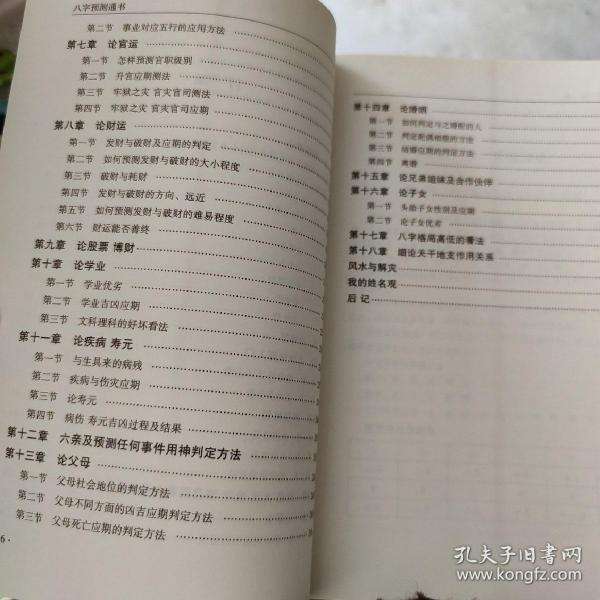 八字预测通书
第二节 事业对应五行的应用方法
第七章 论官运
第一节 怎样预测官职级别
第二节 升官应期测法
第三节 牢狱之灾 官灾官司测法
第四节 牢狱之灾 官灾官司应期
第八章 论财运
第一节 发财与破财及应期的判定
第二节 如何预测发财与破财的大小程度
第三节 破财与耗财
第四节 发财与破财的方向、远近
第五节 如何预测发财与破财的难易程度
第六节 财运能否善终
第九章 论股票 博财
第十章 论学业
第一节 学业优劣
第二节 学业吉凶应期
第三节 文科理科的好坏看法
第十一章 论疾病 寿元
第一节 与生具来的病残
第二节 疾病与伤灾应期
第三节 论寿元
第四节 病伤 寿元吉凶过程及结果
第十二章 六亲及预测任何事件用神判定方法
第十三章 论父母
第一节 父母社会地位的判定方法
第二节 父母不同方面的凶吉应期判定方法
第三节 父母死亡应期的判定方法
6·
第十四章 论婚姻
第一节 如何判定与之婚配的人
第二节 判定配偶相貌的方法
第三节 结婚应期的判定方法
第四节 离婚
第十五章 论兄弟姐妹及合作伙伴
第十六章 论子女
第一节 头胎子女性别及应期
第二节 论子女优劣
第十七章 八字格局高低的看法
第十八章 细论天干地支作用关系
风水与解灾
我的姓名观
后记
孔夫子旧书网
www.kongfz.com